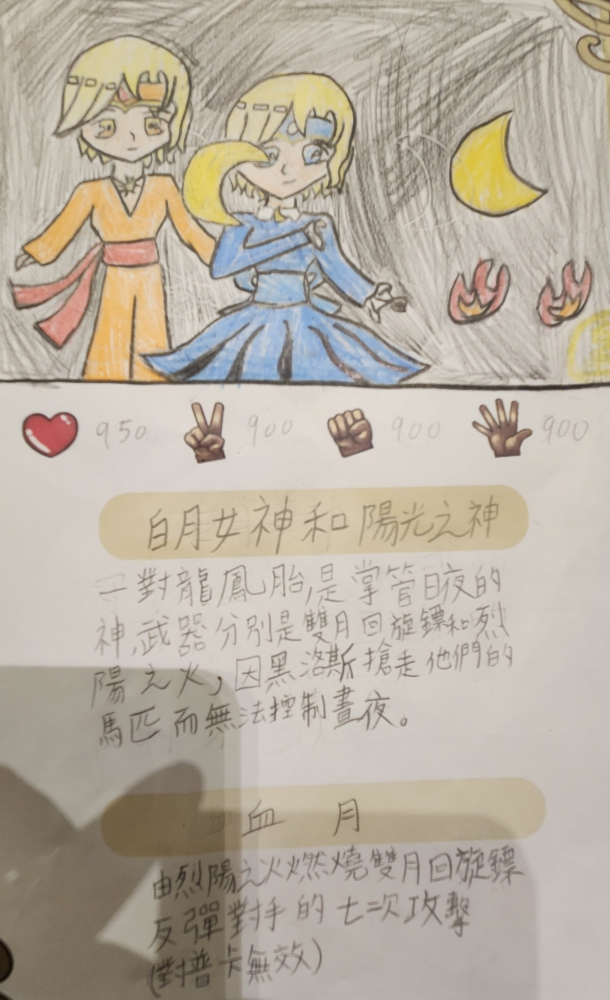 950 900 900 900
白月女神和陽光之神
一對龍鳳胎,是掌管日夜的
神,武器分別是雙月回旋鏢和烈
陽之火,因黑洛斯搶走他們的
馬匹而無法控制晝夜。
血月
由烈陽之火燃燒雙月回旋鏢
反彈對手的七次攻擊
(對普卡無效)